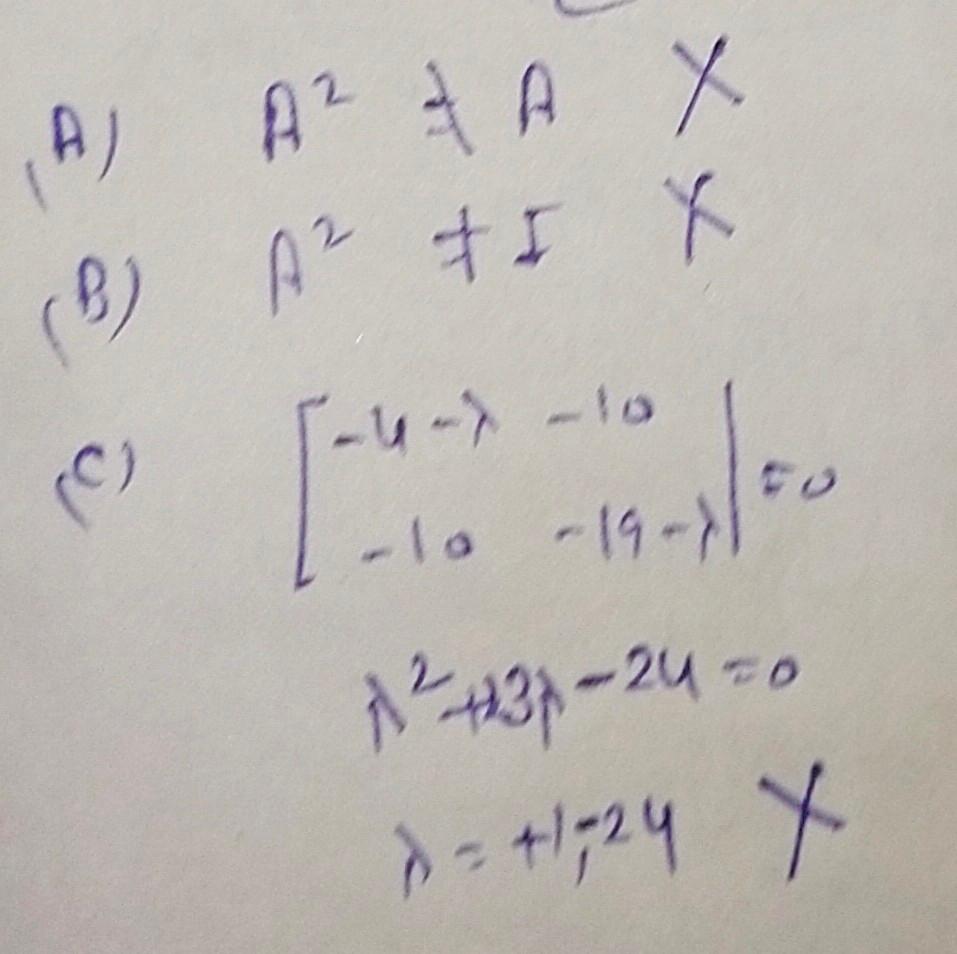 (A) A² ≠ A X
(B) A² ≠ I X
(C) [-4-λ -10
-10 -19-λ| =0
λ²+23λ-24=0
λ = +1,-24 X